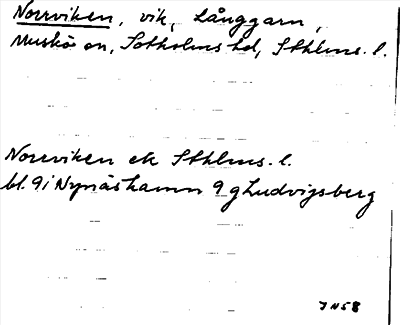 Norrviken, vik, Långgarn,
Muskö sn, Sotholms hd, Sthlms. l.
Norrviken ek Sthlms. l.
bl. 9i Nynäshamn 9g Ludvigsberg
JN58